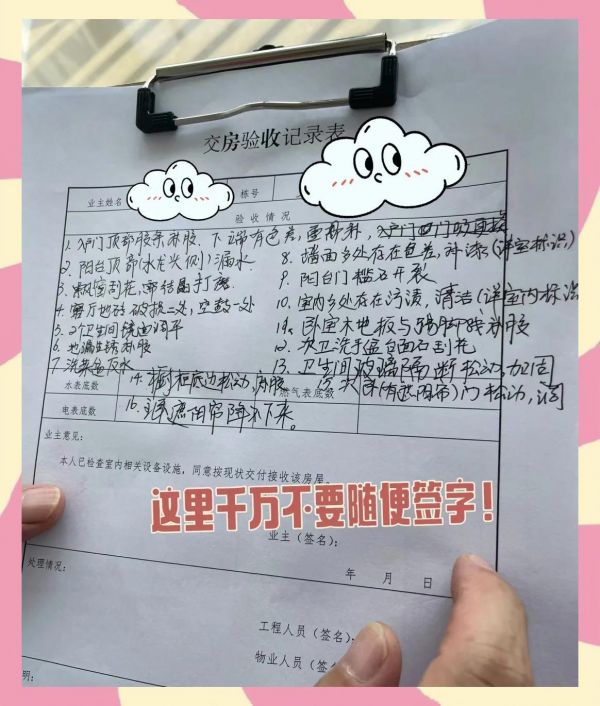 交房验收记录表
业主姓名
栋号
验收情况
1. 入门顶部胶条补胶、下端有色差,需断料,
2. 阳台顶部(水龙头侧)漏水
8. 墙面多处存在色差,补漆(详室标识)
9. 阳台门槛石开裂
4. 客厅地砖破损二处,空鼓一处
10. 室内多处存在污渍,清洁(详室内标识
5. 2个卫生间镜面调平
14. 卧室木地板与踢脚线补胶
6. 地漏生锈补胶
12. 次卫洗手盆台面石刮花
7. 洗菜盆反水
13. 卫生间玻璃隔断松动,加固
水表底数
14. 底边松动,补胶
燃气表底数
门松动,
电表底数
16. 遮阳帘降不下来。
业主意见:
本人已检查室内相关设备设施,同意按现状交付接收该房屋。
这里千万不要随便签字!
业主(签名):
年 月 日
处理情况:
工程人员(签名):
物业人员(签名):
明: